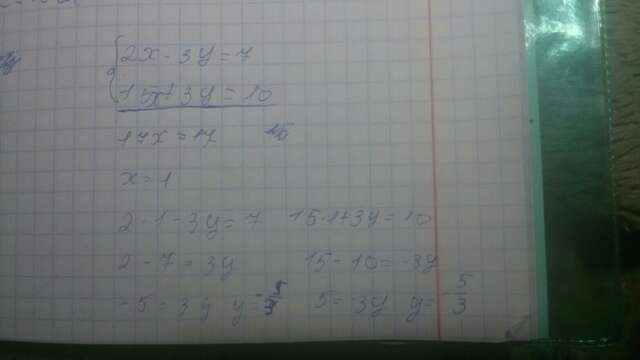 {2x - 3y = 7
15x + 3y = 10
17x = 17
x = 1
2 · 1 - 3y = 7 15 · 1 + 3y = 10
2 - 7 = 3y 15 - 10 = -3y
-5 = 3y y = -5/3 5 = -3y y = -5/3